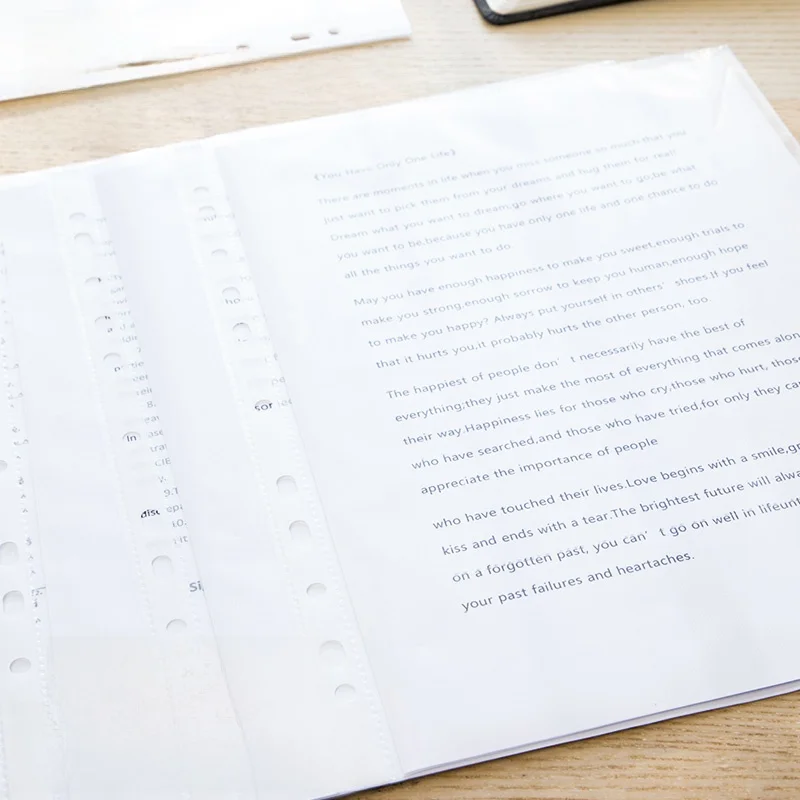 《You Have Only One Life》
There are moments in life when you miss someone so much that you
just want to pick them from your dreams and hug them for real!
Dream what you want to dream;go where you want to go;be what
you want to be,because you have only one life and one chance to do
all the things you want to do.
May you have enough happiness to make you sweet,enough trials to
make you strong,enough sorrow to keep you human,enough hope
to make you happy? Always put yourself in others’ shoes.If you feel
that it hurts you,it probably hurts the other person, too.
The happiest of people don’t necessarily have the best of
everything;they just make the most of everything that comes alon
their way.Happiness lies for those who cry,those who hurt, those
who have searched,and those who have tried,for only they ca
appreciate the importance of people
who have touched their lives.Love begins with a smile,gr
kiss and ends with a tear.The brightest future will alwa
on a forgotten past, you can’t go on well in lifeunt
your past failures and heartaches.